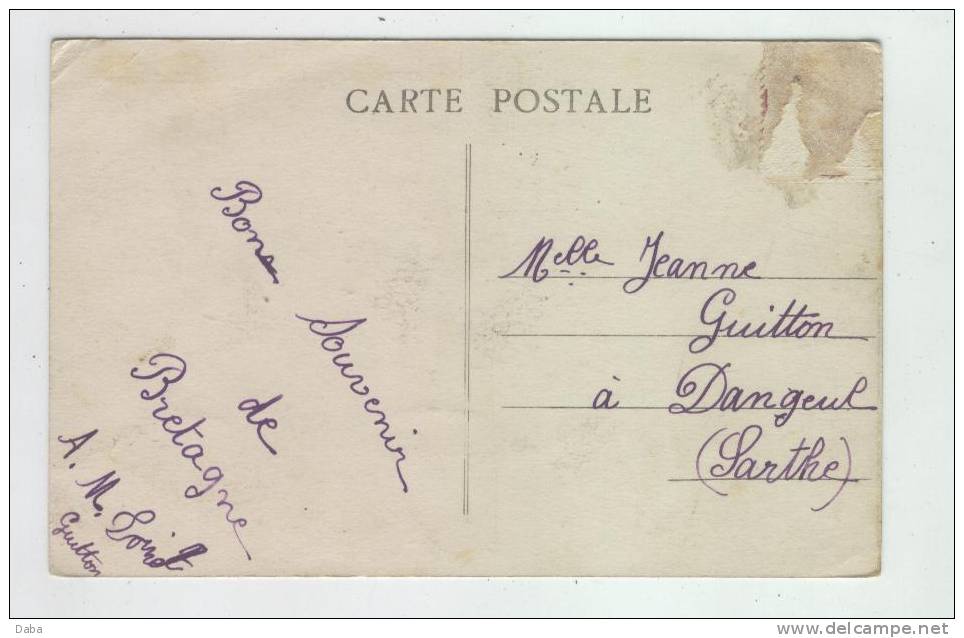 CARTE POSTALE
Bons
Souvenir
de
Bretagne
A. M.
Guitton
Melle Jeanne
Guitton
à Dangeul
(Sarthe)
Daba
www.delcampe.net